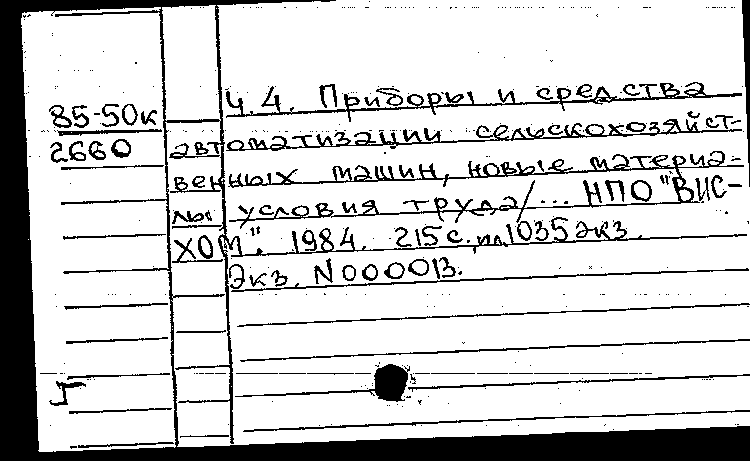 85-50к
2660
Ч.4. Приборы и средства
автоматизации сельскохозяйст-
венных машин, новые материа-
лы условия труда/... НПО "ВИС-
ХОМ". 1984. 215 с. ил. 1035 экз.
Экз. N000013.